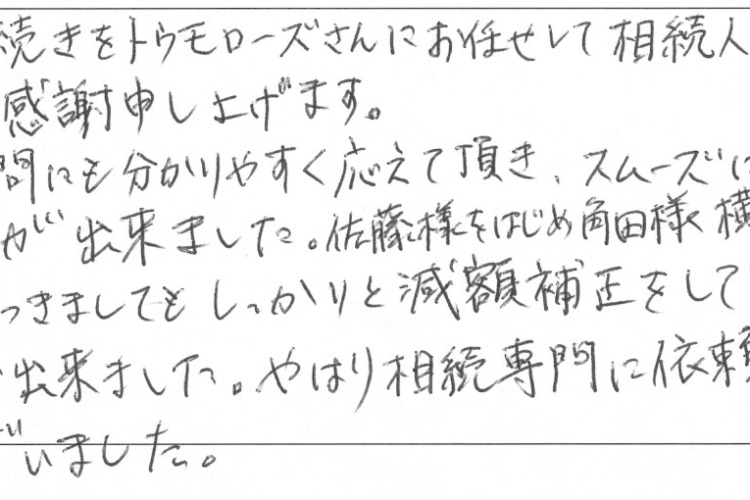 続きをトゥモローズさんにお任せして相続人
感謝申し上げます。
問にも分かりやすく応えて頂き、スムーズに
が出来ました。佐藤様をはじめ角田様横
つきましてもしっかりと減額補正をして
出来ました。やはり相続専門に依頼
ざいました。